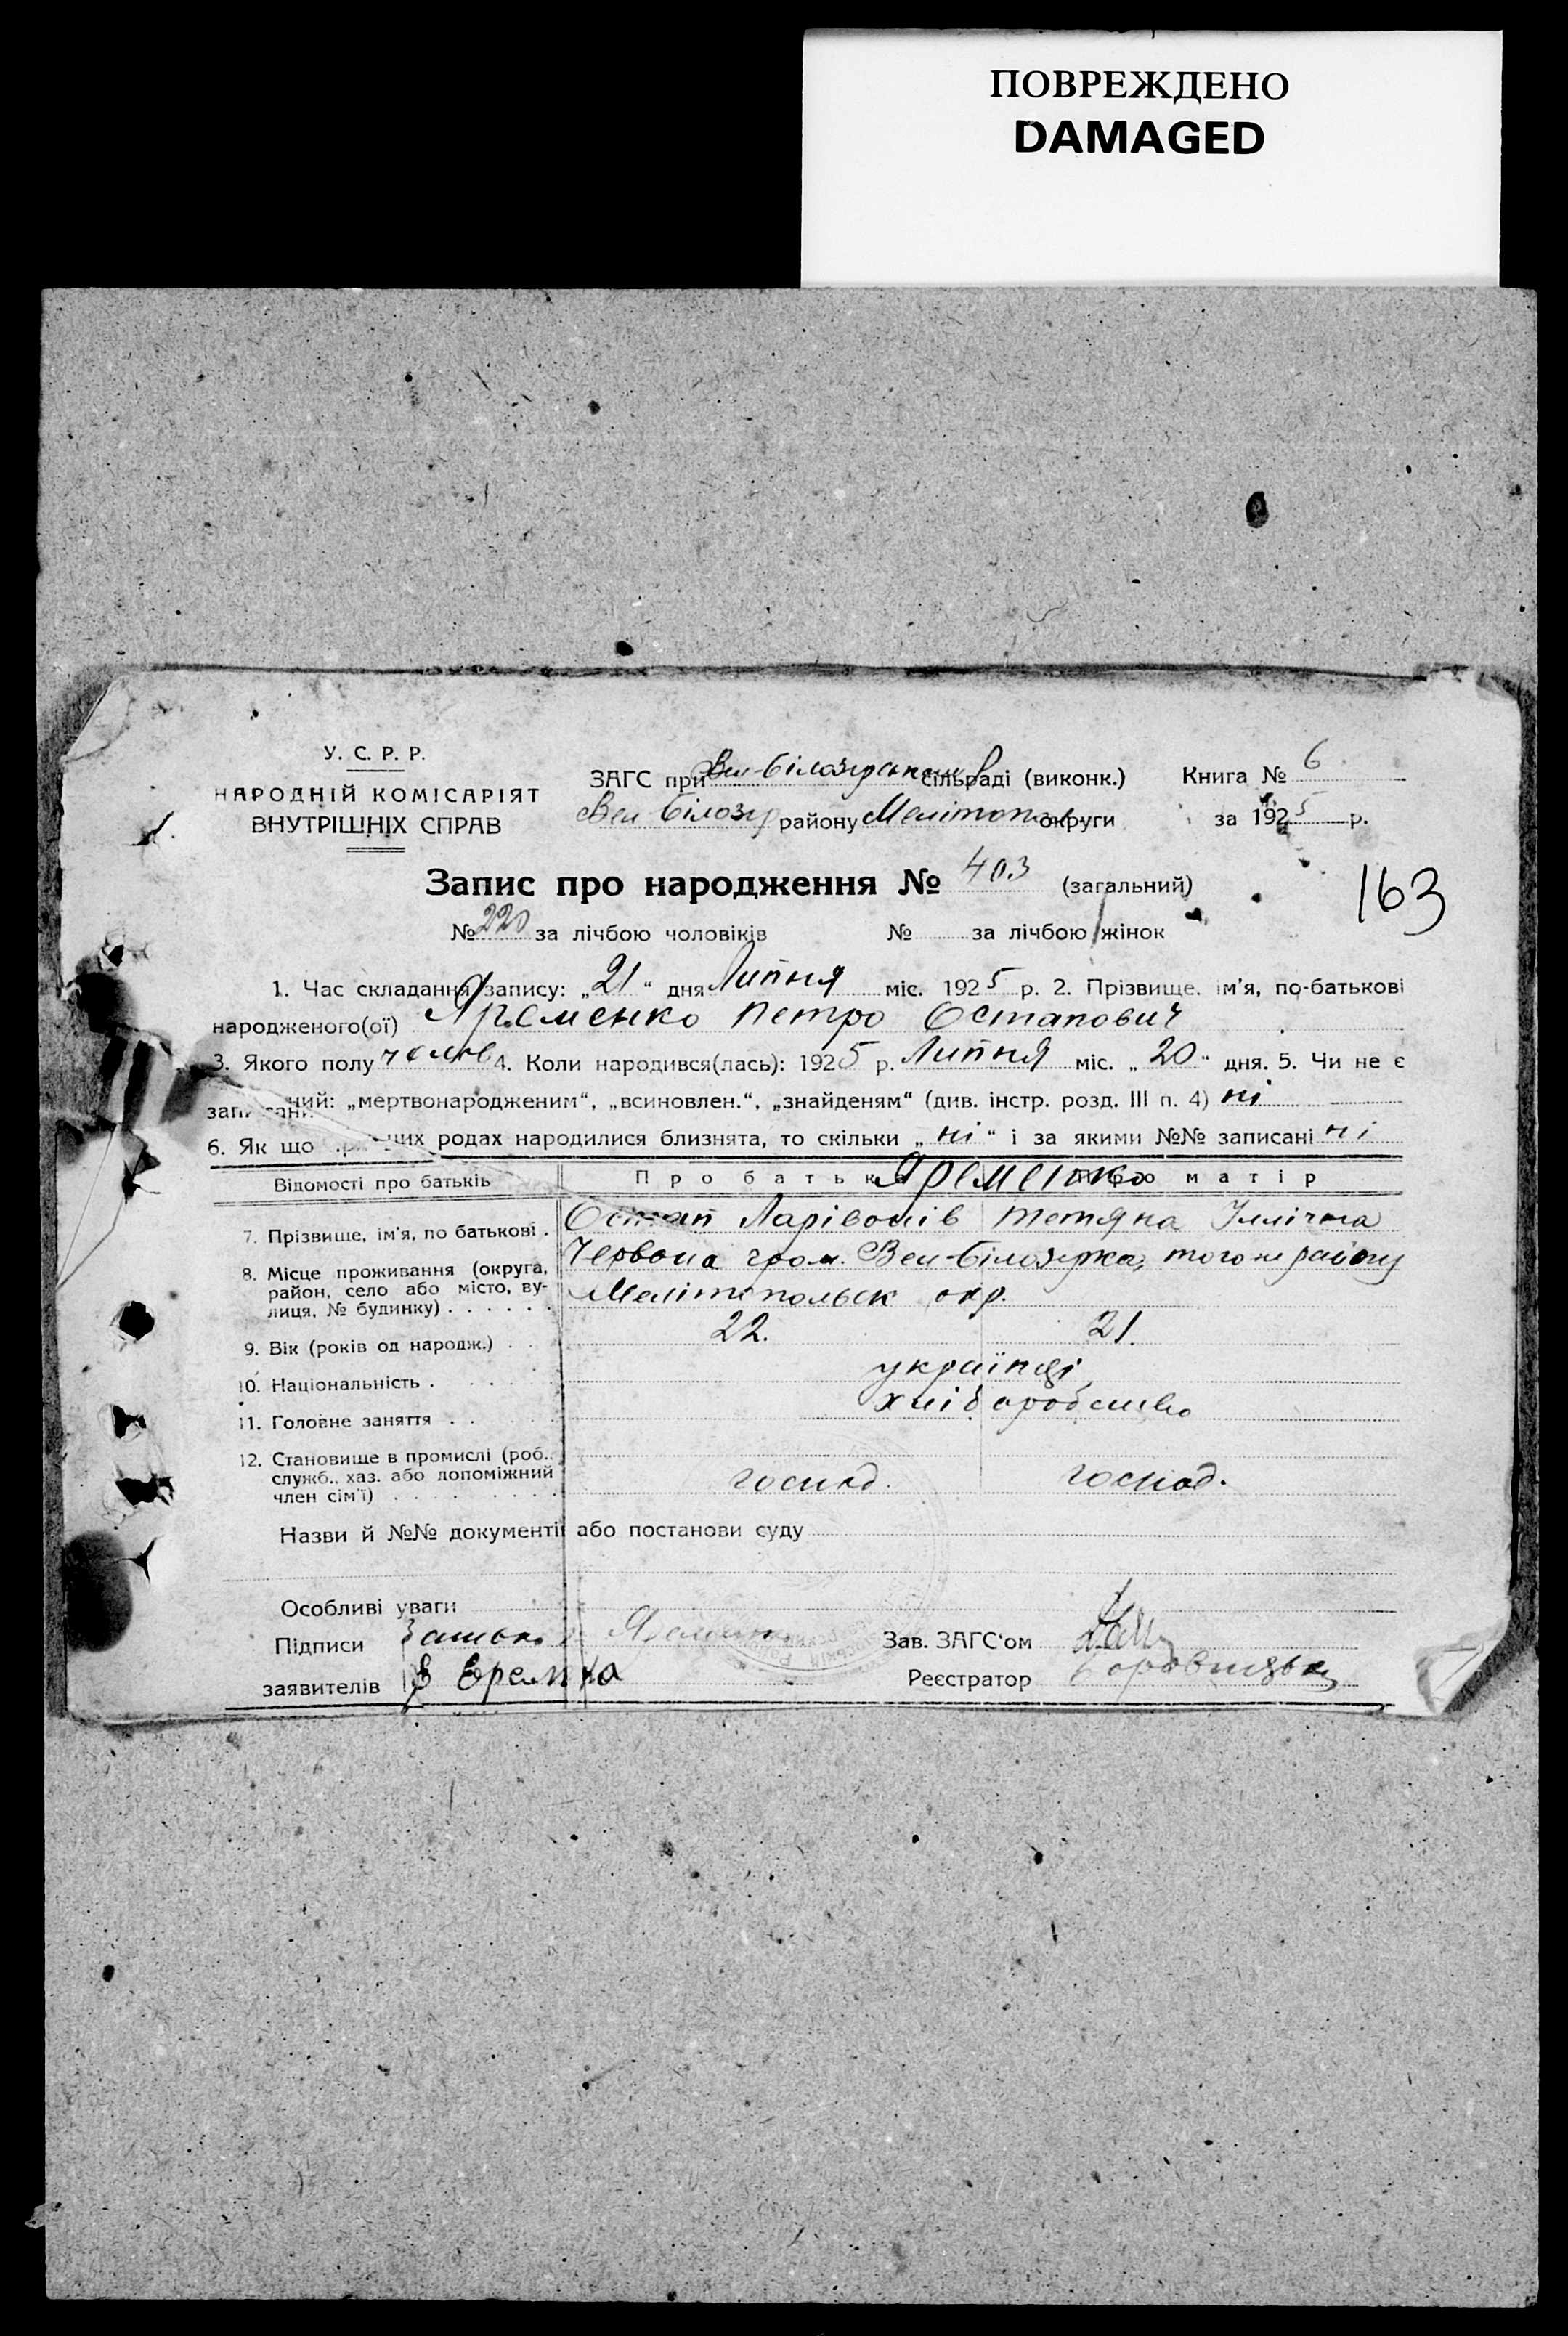 ПОВРЕЖДЕНО
DAMAGED
У. С. Р. Р.
НАРОДНІЙ КОМІСАРІЯТ
ВНУТРІШНІХ СПРАВ
ЗАГС при Вел-Білозерськім сільраді (виконк.)
Вел Білозер району Мелітоп округи
Книга № 6
за 1925 р.
Запис про народження № 403 (загальний)
163
№ 220 за лічбою чоловіків № за лічбою жінок
1. Час складання запису: „21“ дня Липня міс. 1925 р. 2. Прізвище, ім'я, по-батькові
народженого(ої) Яременко Петро Остапович
3. Якого полу чолов 4. Коли народився(лась): 1925 р. Липня міс. „20“ дня. 5. Чи не є
„мертвонародженим“, „всиновлен.“, „знайденям“ (див. інстр. розд. III п. 4) ні
6. Як що родах народилися близнята, то скільки „ні“ і за якими №№ записані ні
Відомості про батьків Про батька Яременко Про матір
7. Прізвище, ім'я, по батькові . Остап Ларівонів Тетяна Іллічна
8. Місце проживання (округа, район, село або місто, вулиця, № будинку) . . . . . .
Червона гром. Вел-Білозерка, того ж району
Мелітопольск окр.
9. Вік (років од народж.) . . 22. 21.
10. Національність . українці
11. Головне заняття . . хліборобство
12. Становище в промислі (роб., служб., хаз. або допоміжний член сім'ї) господ. господ.
Назви й №№ документів або постанови суду
Особливі уваги
Підписи
заявителів
Зав. ЗАГС'ом
Реєстратор